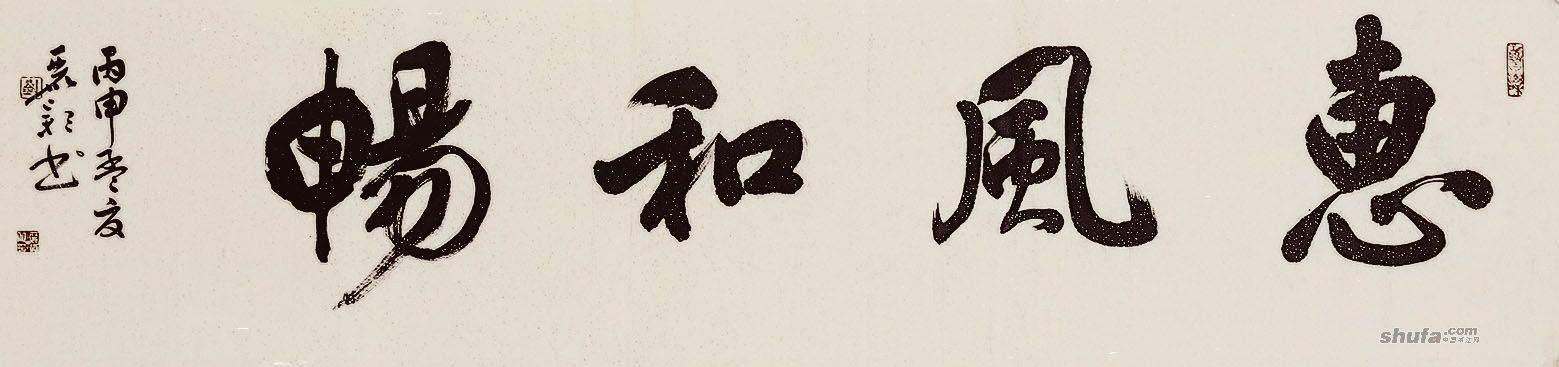 惠風和暢
丙申孟夏
書
shufa.com